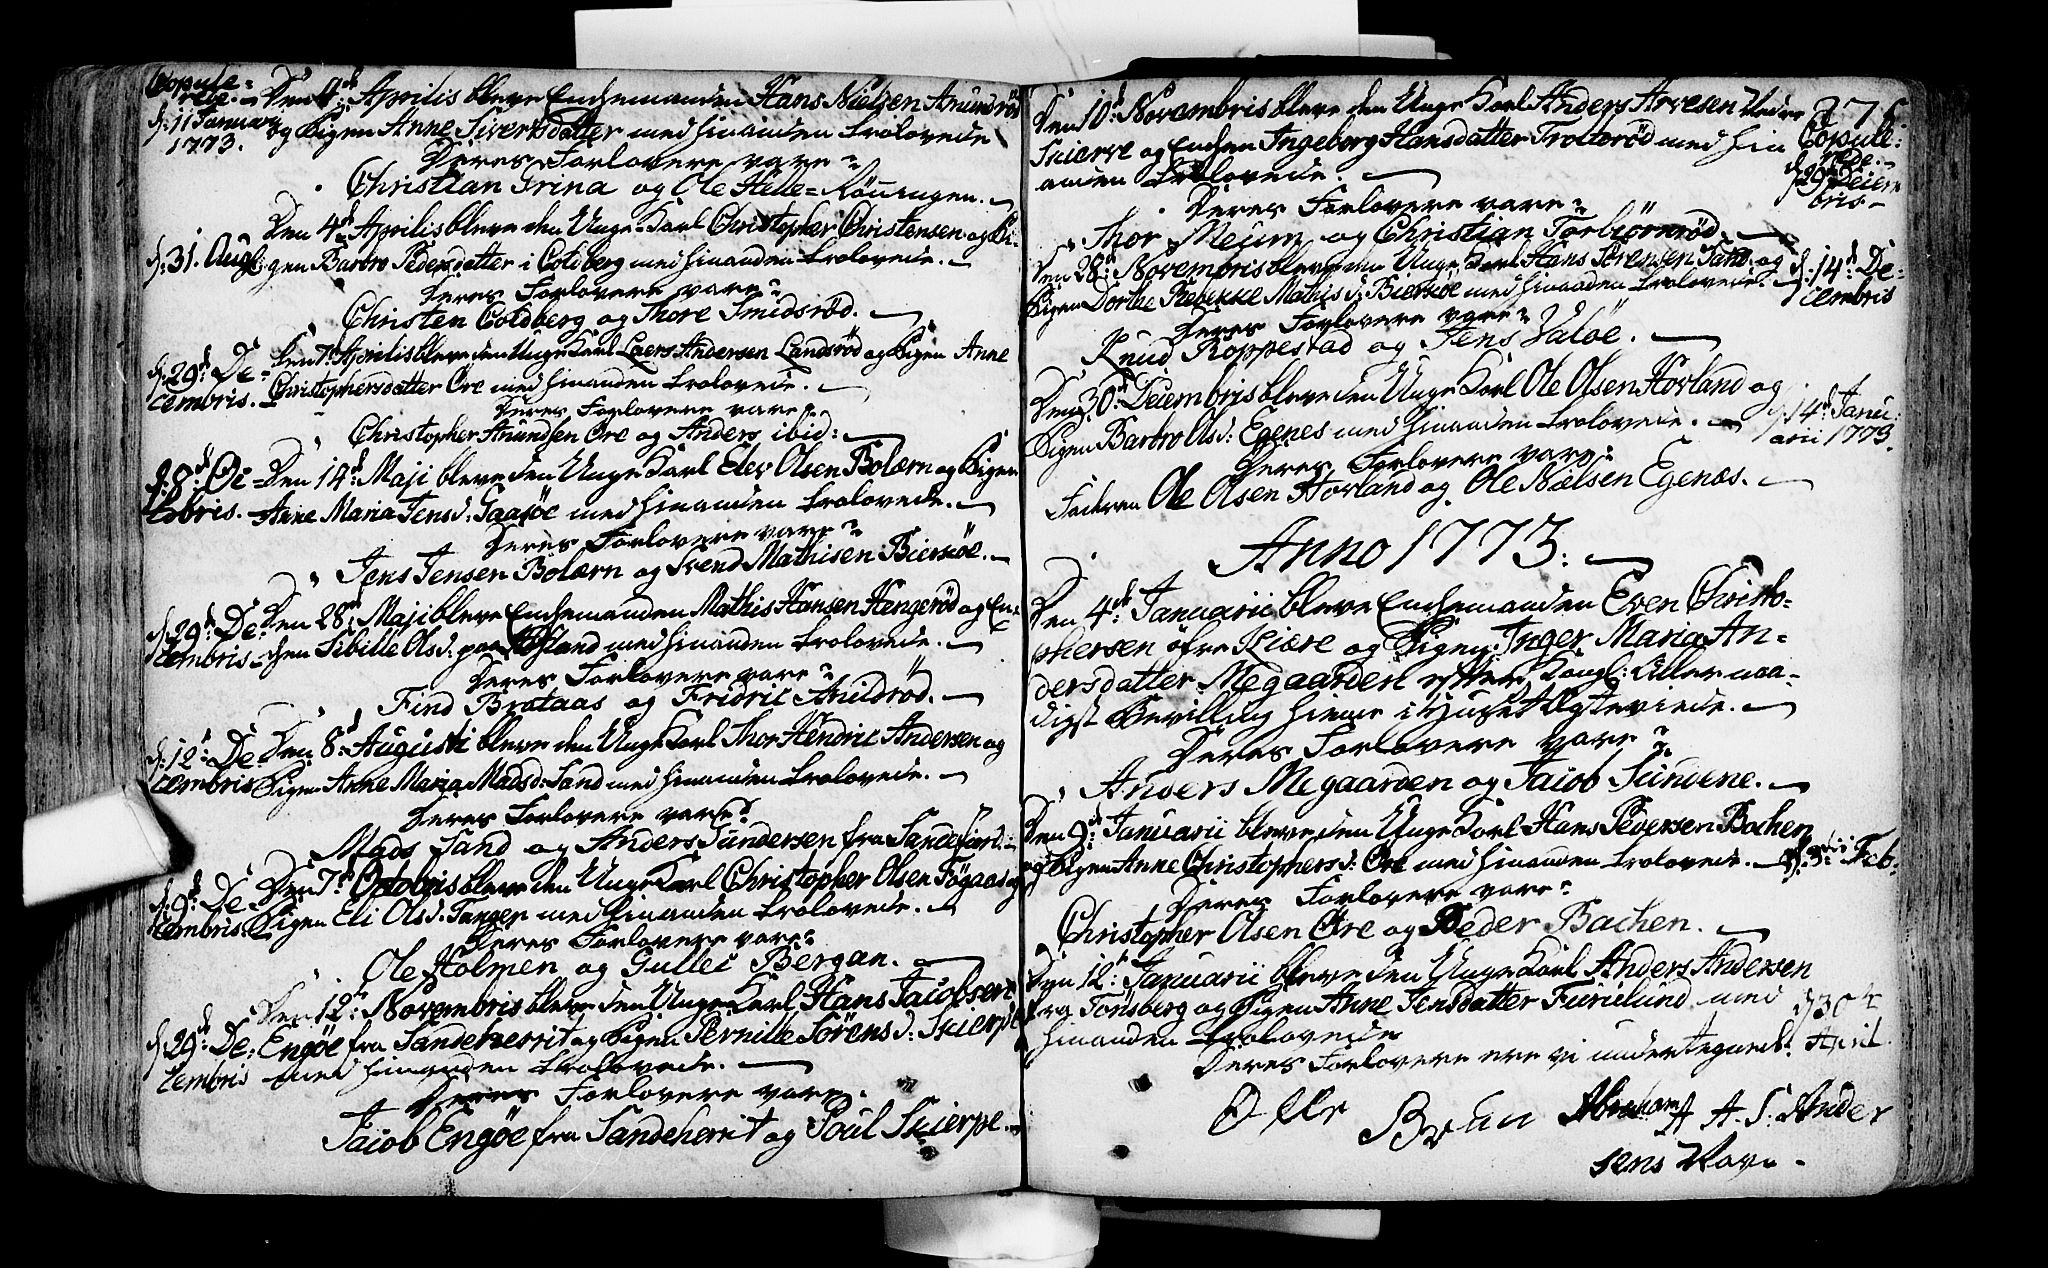 Copule=
rede. Den 4de Aprilis bleve Enchemanden Hans Nielsen Anundrød
d: 11 January og Pigen Anne Sivertsdatter med hinanden trolovede
1773.
Deres Forlovere vare:
Christian Grina og Ole Helle=Rønningen.
Den 4de Aprilis bleve den Unge Karl Christopher Christensen og Pi-
d: 31. Aug. gen Barbro Pedersdatter i Coldberg med hinanden trolovede.
Deres Forlovere vare:
Christen Coldberg og Thore Smidsrød.
Den 7de Aprilis bleve den Unge Karl Laers Andersen Landsrød og Pigen Anne
d: 29de De-
cembris. Christophersdatter Øre med hinanden trolovede.
Deres Forlovere vare:
Christopher Anundsen Øre og Anders ibid:
d: 8de De- Den 14de Maji bleve den Unge Karl Elev Olsen Bolærn og Pigen
cbris. Anne Maria Jensd: Gaasøe med hinanden trolovede.
Deres Forlovere vare:
Jens Jensen Bolærn og Svend Mathisen Bierkøe.
d: 29de De- Den 28de Maji bleve Enchemanden Mathis Hansen Hengerød og En-
cembris chen Sibille Olsd: paa land med hinanden trolovede.
Deres Forlovere vare:
Find Brataas og Fridric Anudrød.
d: 12te De- Den 8de Augusti bleve den Unge Karl Thor Hendric Andersen og
cembris Pigen Anne Maria Madsd: Sand med hinanden trolovede.
Deres Forlovere vare:
Mads Sand og Anders Gundersen fra Sandefiord.
d: 9de De- Den 7de Octobris bleve den Unge Karl Christopher Olsen Føgaas og
cembris. Pigen Eli Olsd: Tangen med hinanden trolovede.
Deres Forlovere vare:
Ole Holmen og Gullec Bergan.
Den 12te Novembris bleve den Unge Karl Hans Jacobsen
d: 29de De- Engøe fra Sandeherrit og Pigen Pernille Sørensd: Skierpe
cembris med hinanden trolovede.
Deres Forlovere vare.
Jacob Engøe fra Sandeherrit og Poul Skierpe.
276.
Den 10de Novembris bleve den Unge Karl Anders Arvesen Nedre
Skierve og Enchen Ingeborg Hansdatter Trolterød med hin Copule-
anden trolovede. rede.
d: 29de Decem
bris
Deres Forlovere vare:
Thor Meum og Christian Torbiørnrød.
Den 28de Novembris bleve den Unge Karl Hans Sørensen Sand og d: 14de De-
Pigen Dorthe Rebekke Mathisd: Bierkøe med hinanden trolovede. cembris
Deres Forlovere vare:
Knud Roppestad og Jens Valøe.
Den 30te Decembris bleve den Unge Karl Ole Olsen Hovland og
Pigen Barbro Olsd: Egenes med hinanden trolovede. d: 14de Janu-
arii 1773.
Deres Forlovere vare:
Faderen Ole Olsen Hovland og Ole Nielsen Egenæs.
Anno 1773.
Den 4de Januarii bleve Enchemanden Even Christo-
phersen øfre Kiære og Pigen Inger Maria An-
dersdatter Megaarden efter Kongl: Allernaa-
digst Bevilling hieme i Huset Ægteviede.
Deres Forlovere vare:
Anders Megaarden og Jacob Sundene.
Den 9de Januarii bleve den Unge Karl Hans Pedersen Bachen
og Pigen Anne Christophersd: Øre med hinanden trolovede. d: 3die Feb.
Deres Forlovere vare:
Christopher Olsen Øre og Peder Bachen.
Den 12te Januarii bleve den Unge Karl Anders Andersen
fra Tønsberg og Pigen Anne Jensdatter Furulund med
hinanden trolovede d 30te
Deres Forlovere ere vi undertegnede. April.
Brun Abraham A A. S. Ander
sens Navn.